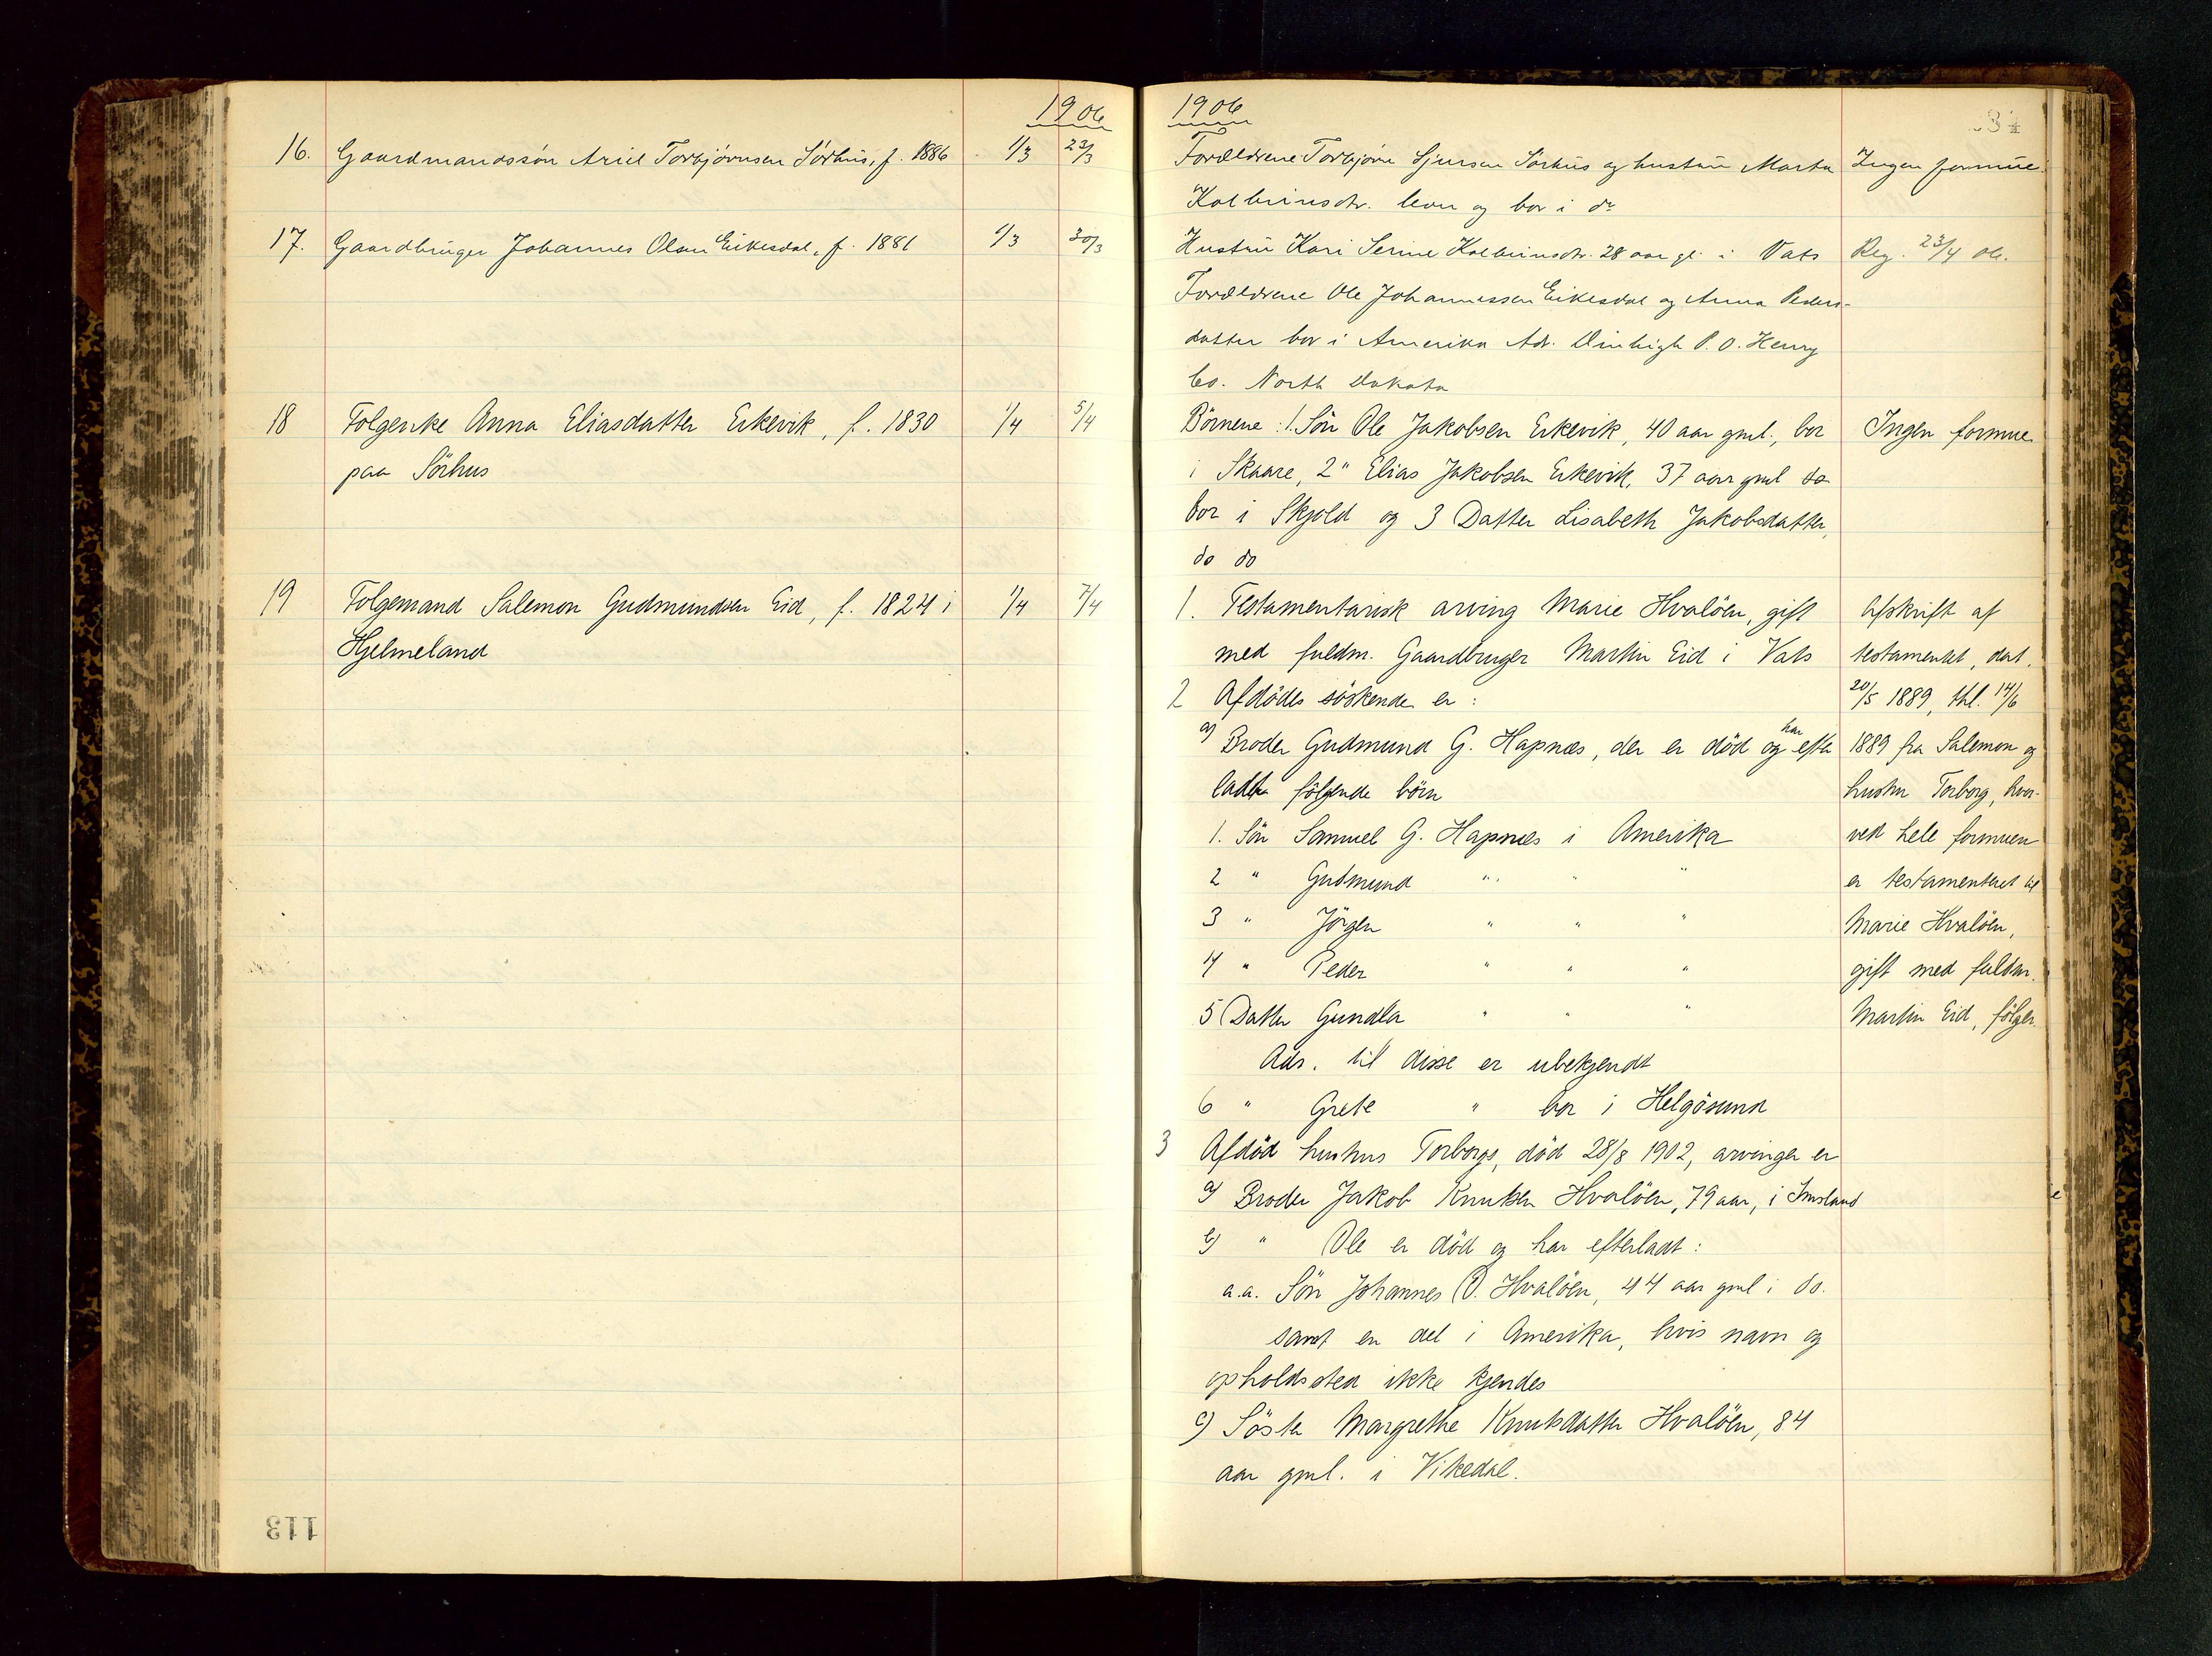 1906
16. Gaardmandssön Ariel Torbjörnsen Sörhus, f. 1886 1/3 23/3
17. Gaardbruger Johannes Olsen Eikesdal, f. 1881 /3 30/3
18 Folgenke Anna Eliasdatter Erkevik, f. 1830 1/4 5/4
paa Sörhus
19 Folgemand Salemon Gudmundsen Eid, f. 1824 i 1/4 7/4
Hjelmeland
113
1906
Forældrene Torbjörn Sjursen Sörhus og hustru Marta Ingen formue
Kolbeinsdtr. lever og bor i do
Hustru Kari Serine Kolbeinsdtr. 28 aar gl. i Vats Reg. 23/4 06.
Forældrene Ole Johannessen Eikesdal og Anna Peders-
datter bor i Amerika Adr. P. O. Henry
Co. North Dakota
Börnene: 1. Sön Ole Jakobsen Erkevik, 40 aar gml., bor Ingen formue
i Skaare, 2 " Elias Jakobsen Erkevik, 37 aar gml do
bor i Skjold og 3 Datter Lisabeth Jakobsdatter,
do do
1. Testamentarisk arving Marie Hvalöen, gift Afskrift af
med fuldm. Gaardbruger Martin Eid i Vats testamentet, dat.
2 Afdödes söskende er: 20/5 1889, thl. 14/6
a) Broder Gudmund G. Hapnæs, der er död og har efter 1889 fra Salemon og
ladte fölgende börn hustru Torborg, hvor-
1. Sön Samuel G. Hapnæs i Amerika ved hele formuen
2 " Gudmund " " " er testamenteret til
3 " Jörgen " " " Marie Hvalöen,
4 " Peder " " " gift med fuldm.
5 Datter Gundla " " " Martin Eid, fölger.
Adr. til disse er ubekjendt
6 " Grete " bor i Helgösund
3 Afdöd hustrus Torborgs, död 28/8 1902, arvinger er
a) Broder Jakob Knutsen Hvalöen, 79 aar, i Imsland
b) " Ole er död og har efterladt:
a.a. Sön Johannes O. Hvalöen, 44 aar gml i do.
samt en del i Amerika, hvis navn og
opholdssted ikke kjendes
c) Söster Margrethe Knutsdatter Hvalöen, 84
aar gml. i Vikedal.